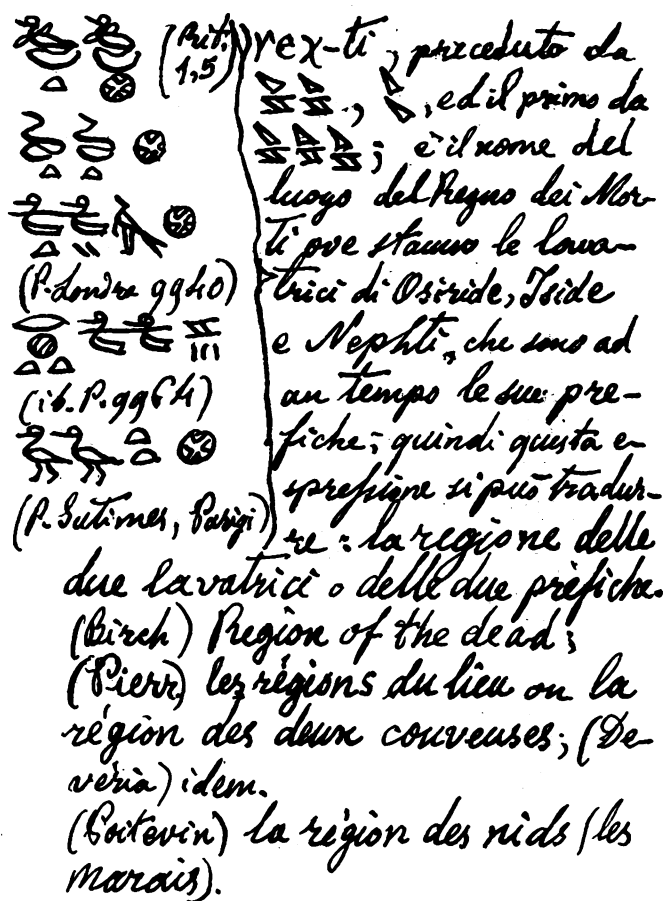 (Ruti. rex-ti, preceduto da
1,5) , , ed il primo da
; è il nome del
luogo del Regno dei Mor-
ti ove stanno le lava-
(P. Londra 9940) trici di Osiride, Iside
e Nephti, che sono ad
(ib. P. 9964) un tempo le sue pre-
fiche; quindi questa e-
spressione si può tradur-
(P. Sutimes, Parigi) re: la regione delle
due lavatrici o delle due prefiche.
(Birch) Region of the dead;
(Pierr) les régions du lieu ou la
région des deux couveuses; (De-
véria) idem.
(Poitevin) la région des nids (les
marais).